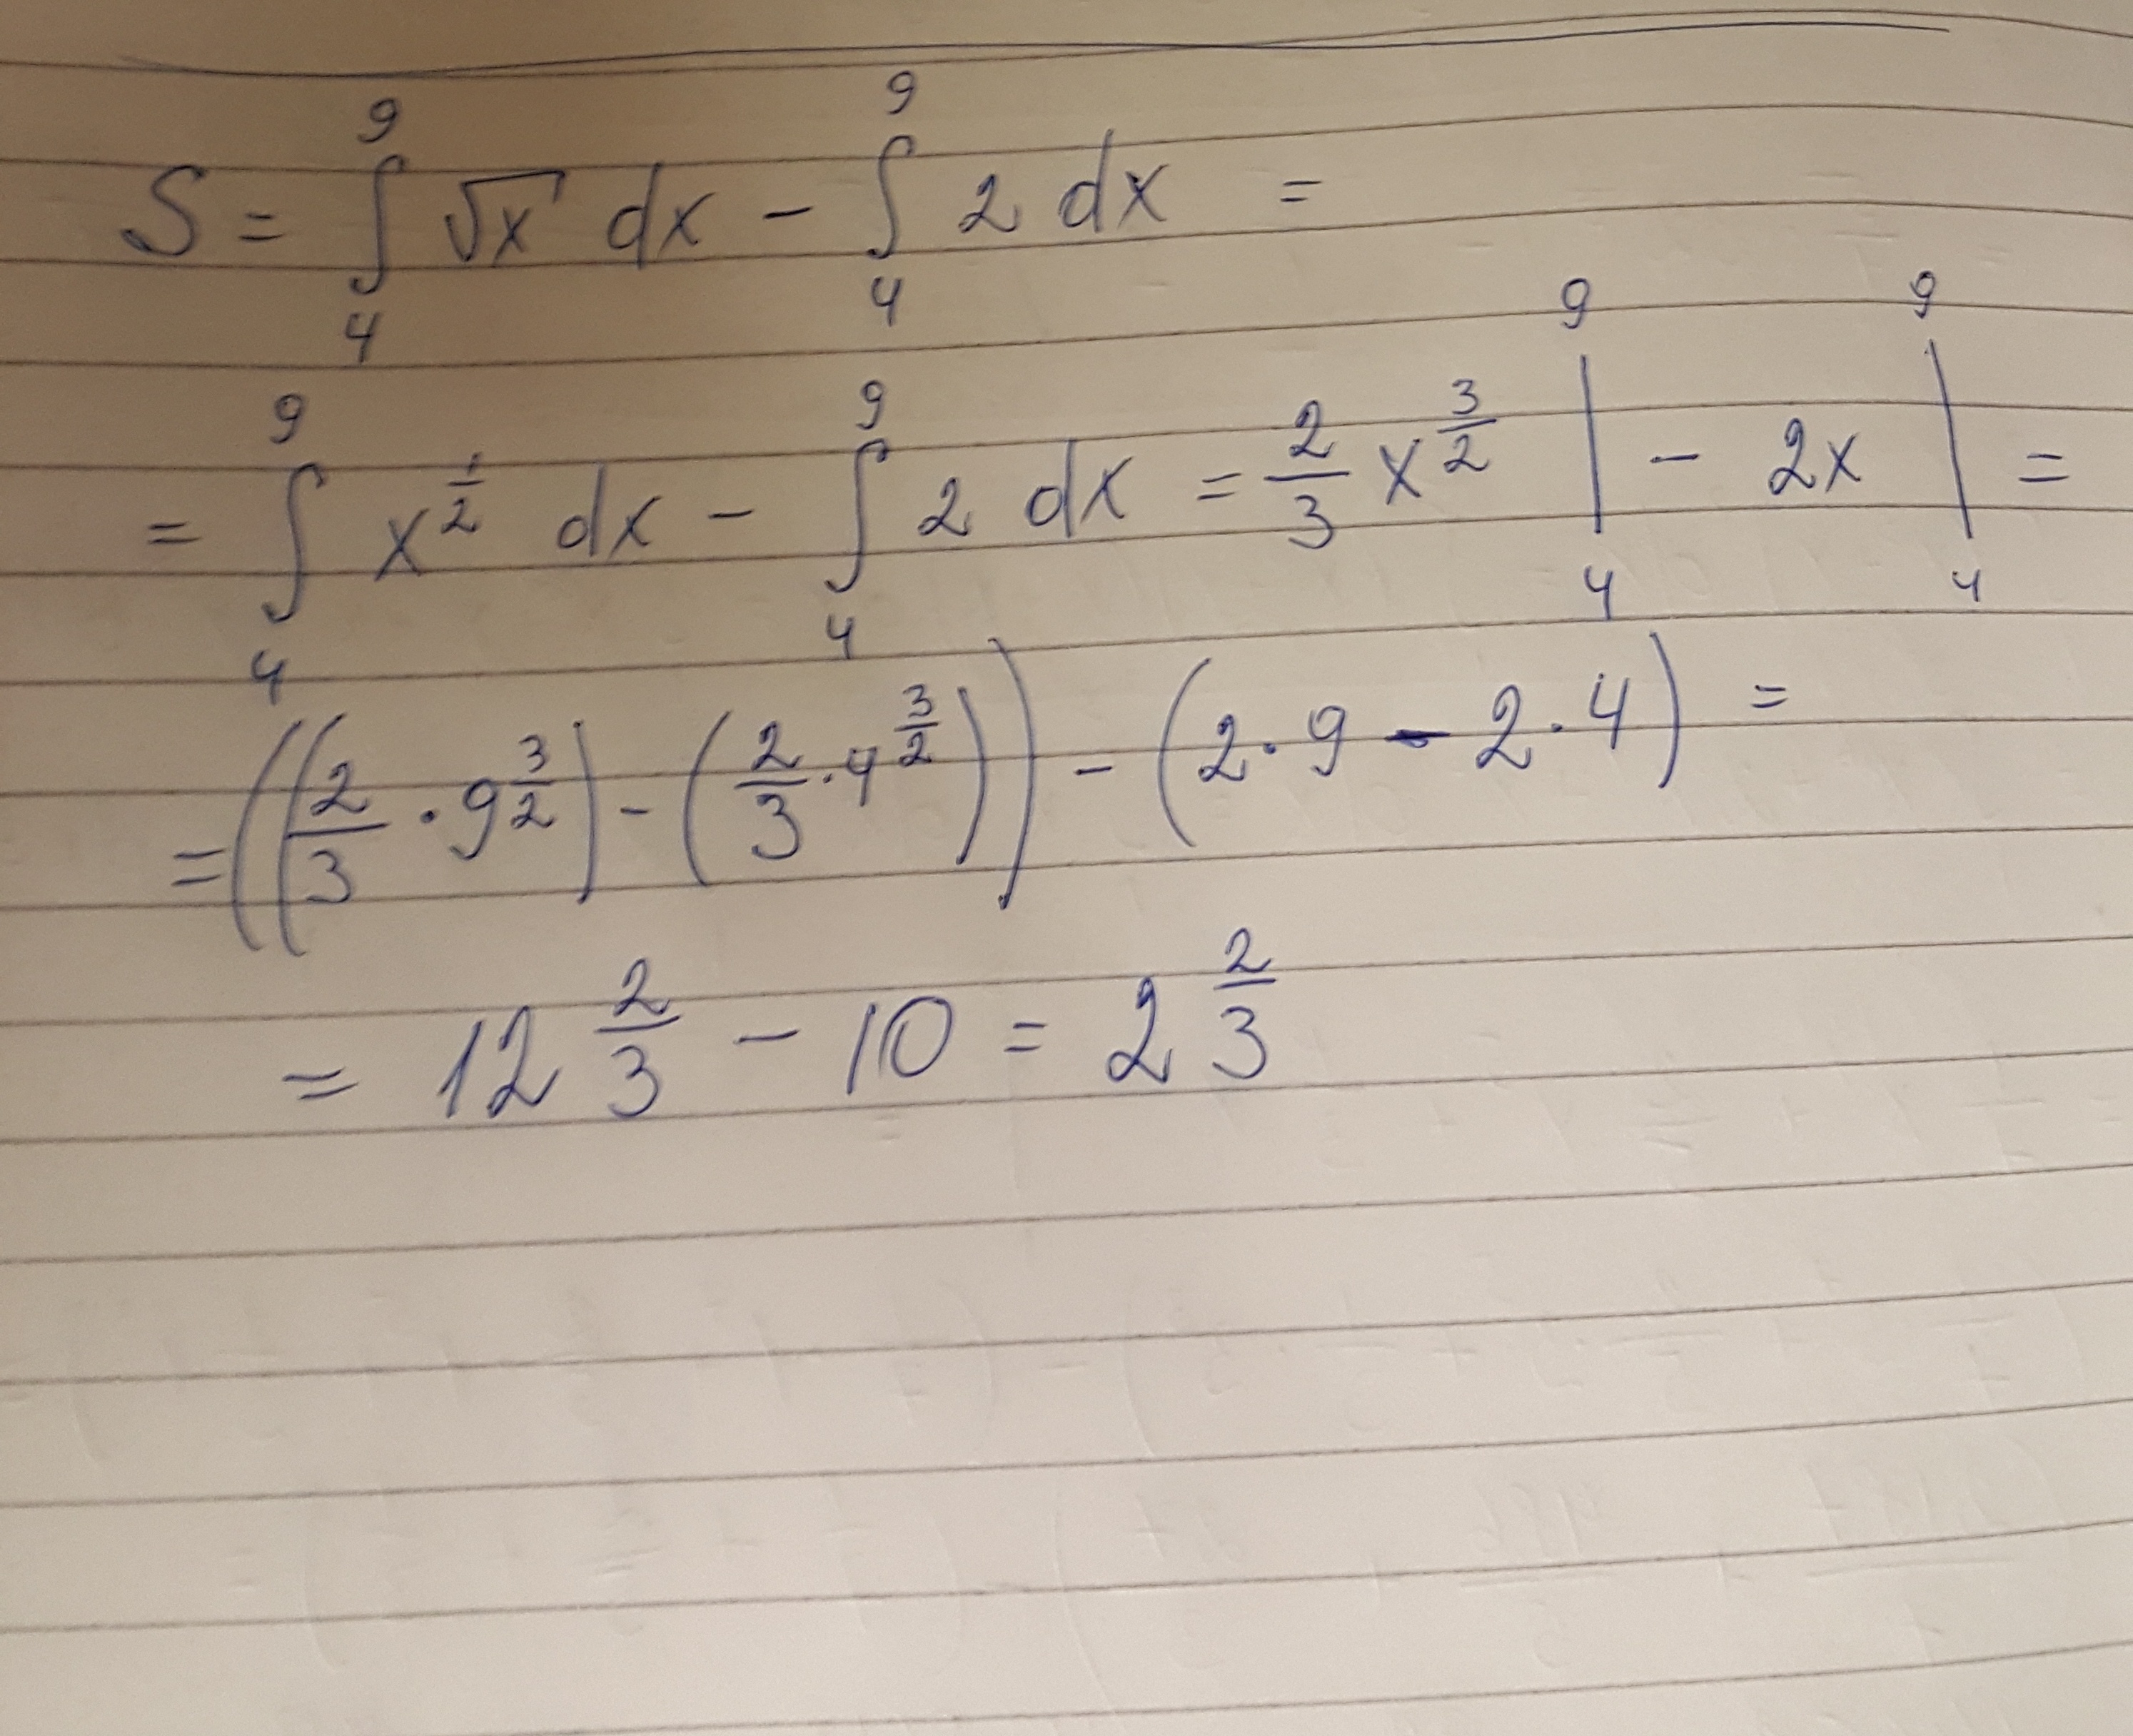 S = ∫₄⁹ √x dx - ∫₄⁹ 2 dx =
= ∫₄⁹ x^(1/2) dx - ∫₄⁹ 2 dx = 2/3 x^(3/2) |₄⁹ - 2x |₄⁹ =
= ((2/3 · 9^(3/2)) - (2/3 · 4^(3/2))) - (2 · 9 - 2 · 4) =
= 12 2/3 - 10 = 2 2/3